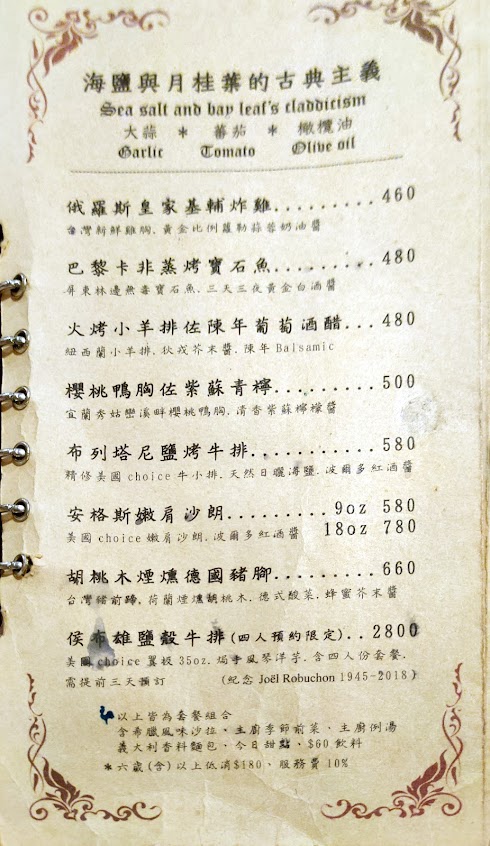 海鹽與月桂葉的古典主義
Sea salt and bay leaf's claddicism
大蒜 * 蕃茄 * 橄欖油
Garlic Tomato Olive oil
俄羅斯皇家基輔炸雞..........460
台灣新鮮雞胸.黃金比例蘿勒蒜蓉奶油醬
巴黎卡非蒸烤寶石魚..........480
屏東林邊無毒寶石魚.三天三夜黃金白酒醬
火烤小羊排佐陳年葡萄酒醋...480
紐西蘭小羊排.狄戎芥末醬.陳年Balsamic
櫻桃鴨胸佐紫蘇青檸..........500
宜蘭秀姑巒溪畔櫻桃鴨胸.清香紫蘇檸檬醬
布列塔尼鹽烤牛排............580
精修美國choice牛小排.天然日曬海鹽.波爾多紅酒醬
安格斯嫩肩沙朗..........9oz 580
美國choice嫩肩沙朗.波爾多紅酒醬 18oz 780
胡桃木煙燻德國豬腳..........660
台灣豬前蹄.荷蘭煙燻胡桃木.德式酸菜.蜂蜜芥末醬
侯布雄鹽殼牛排(四人預約限定)..2800
美國choice翼板35oz.焗手風琴洋芋.含四人份套餐.
需提前三天預訂 (紀念 Joël Robuchon 1945-2018)
以上皆為套餐組合
含希臘風味沙拉、主廚季節前菜、主廚例湯
義大利香料麵包、今日甜點、$60飲料
*六歲(含)以上低消$180、服務費10%